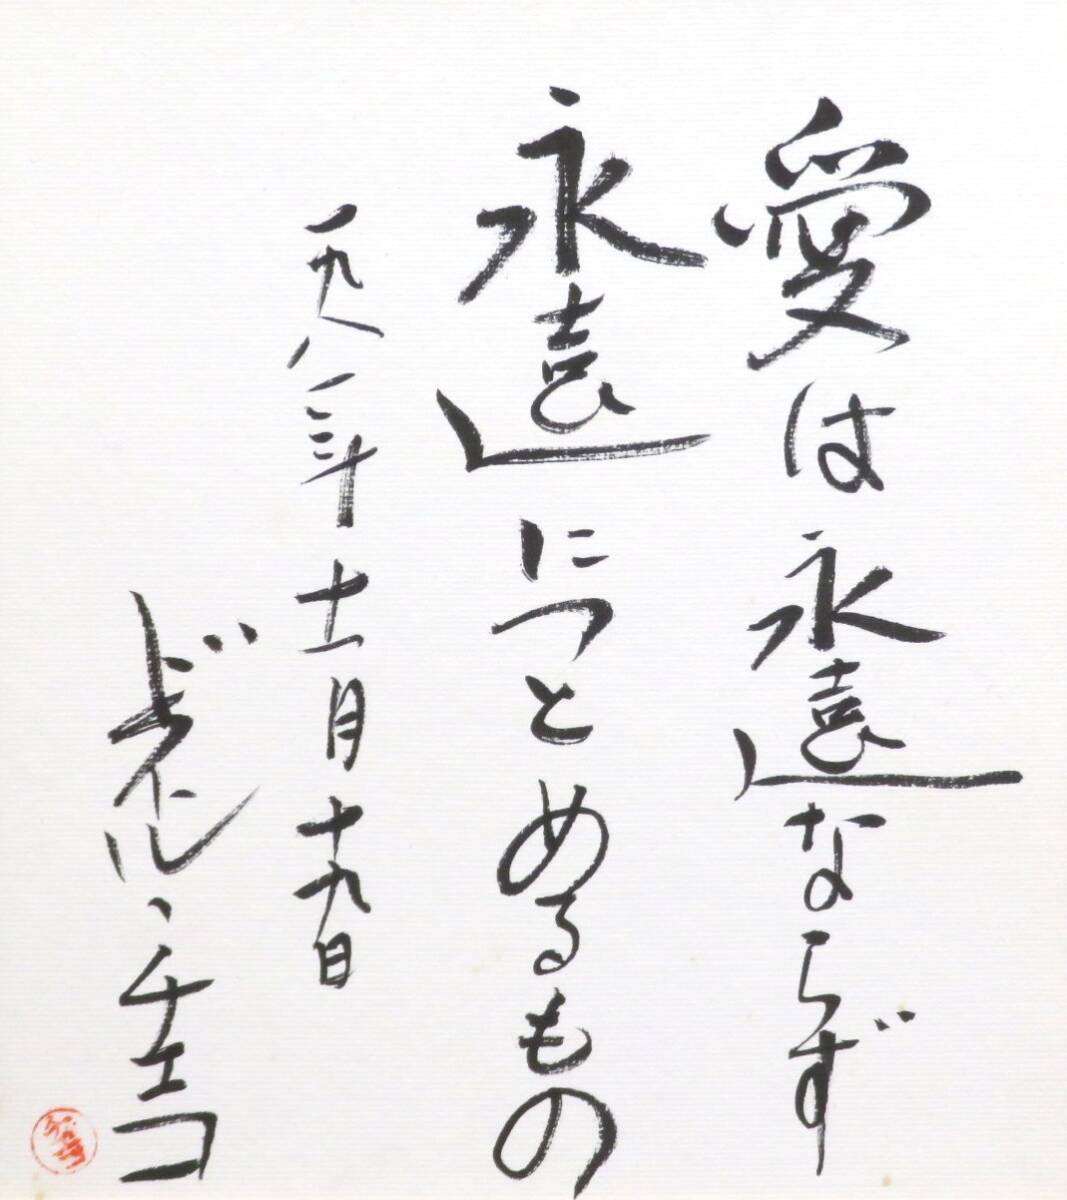 愛は永遠ならず
永遠につとめるもの
一九八二年十一月十九日
ドヌイル・チエコ